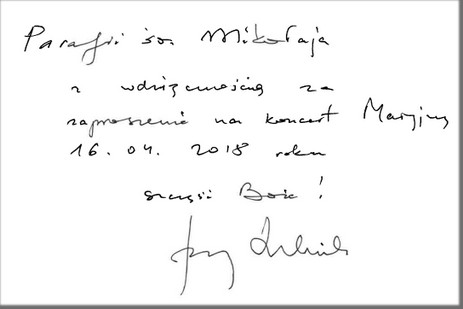 Parafii św. Mikołaja
z wdzięcznością za
zaproszenie na koncert Maryjny
16.04.2018 roku
szczęść Boże!
Jerzy